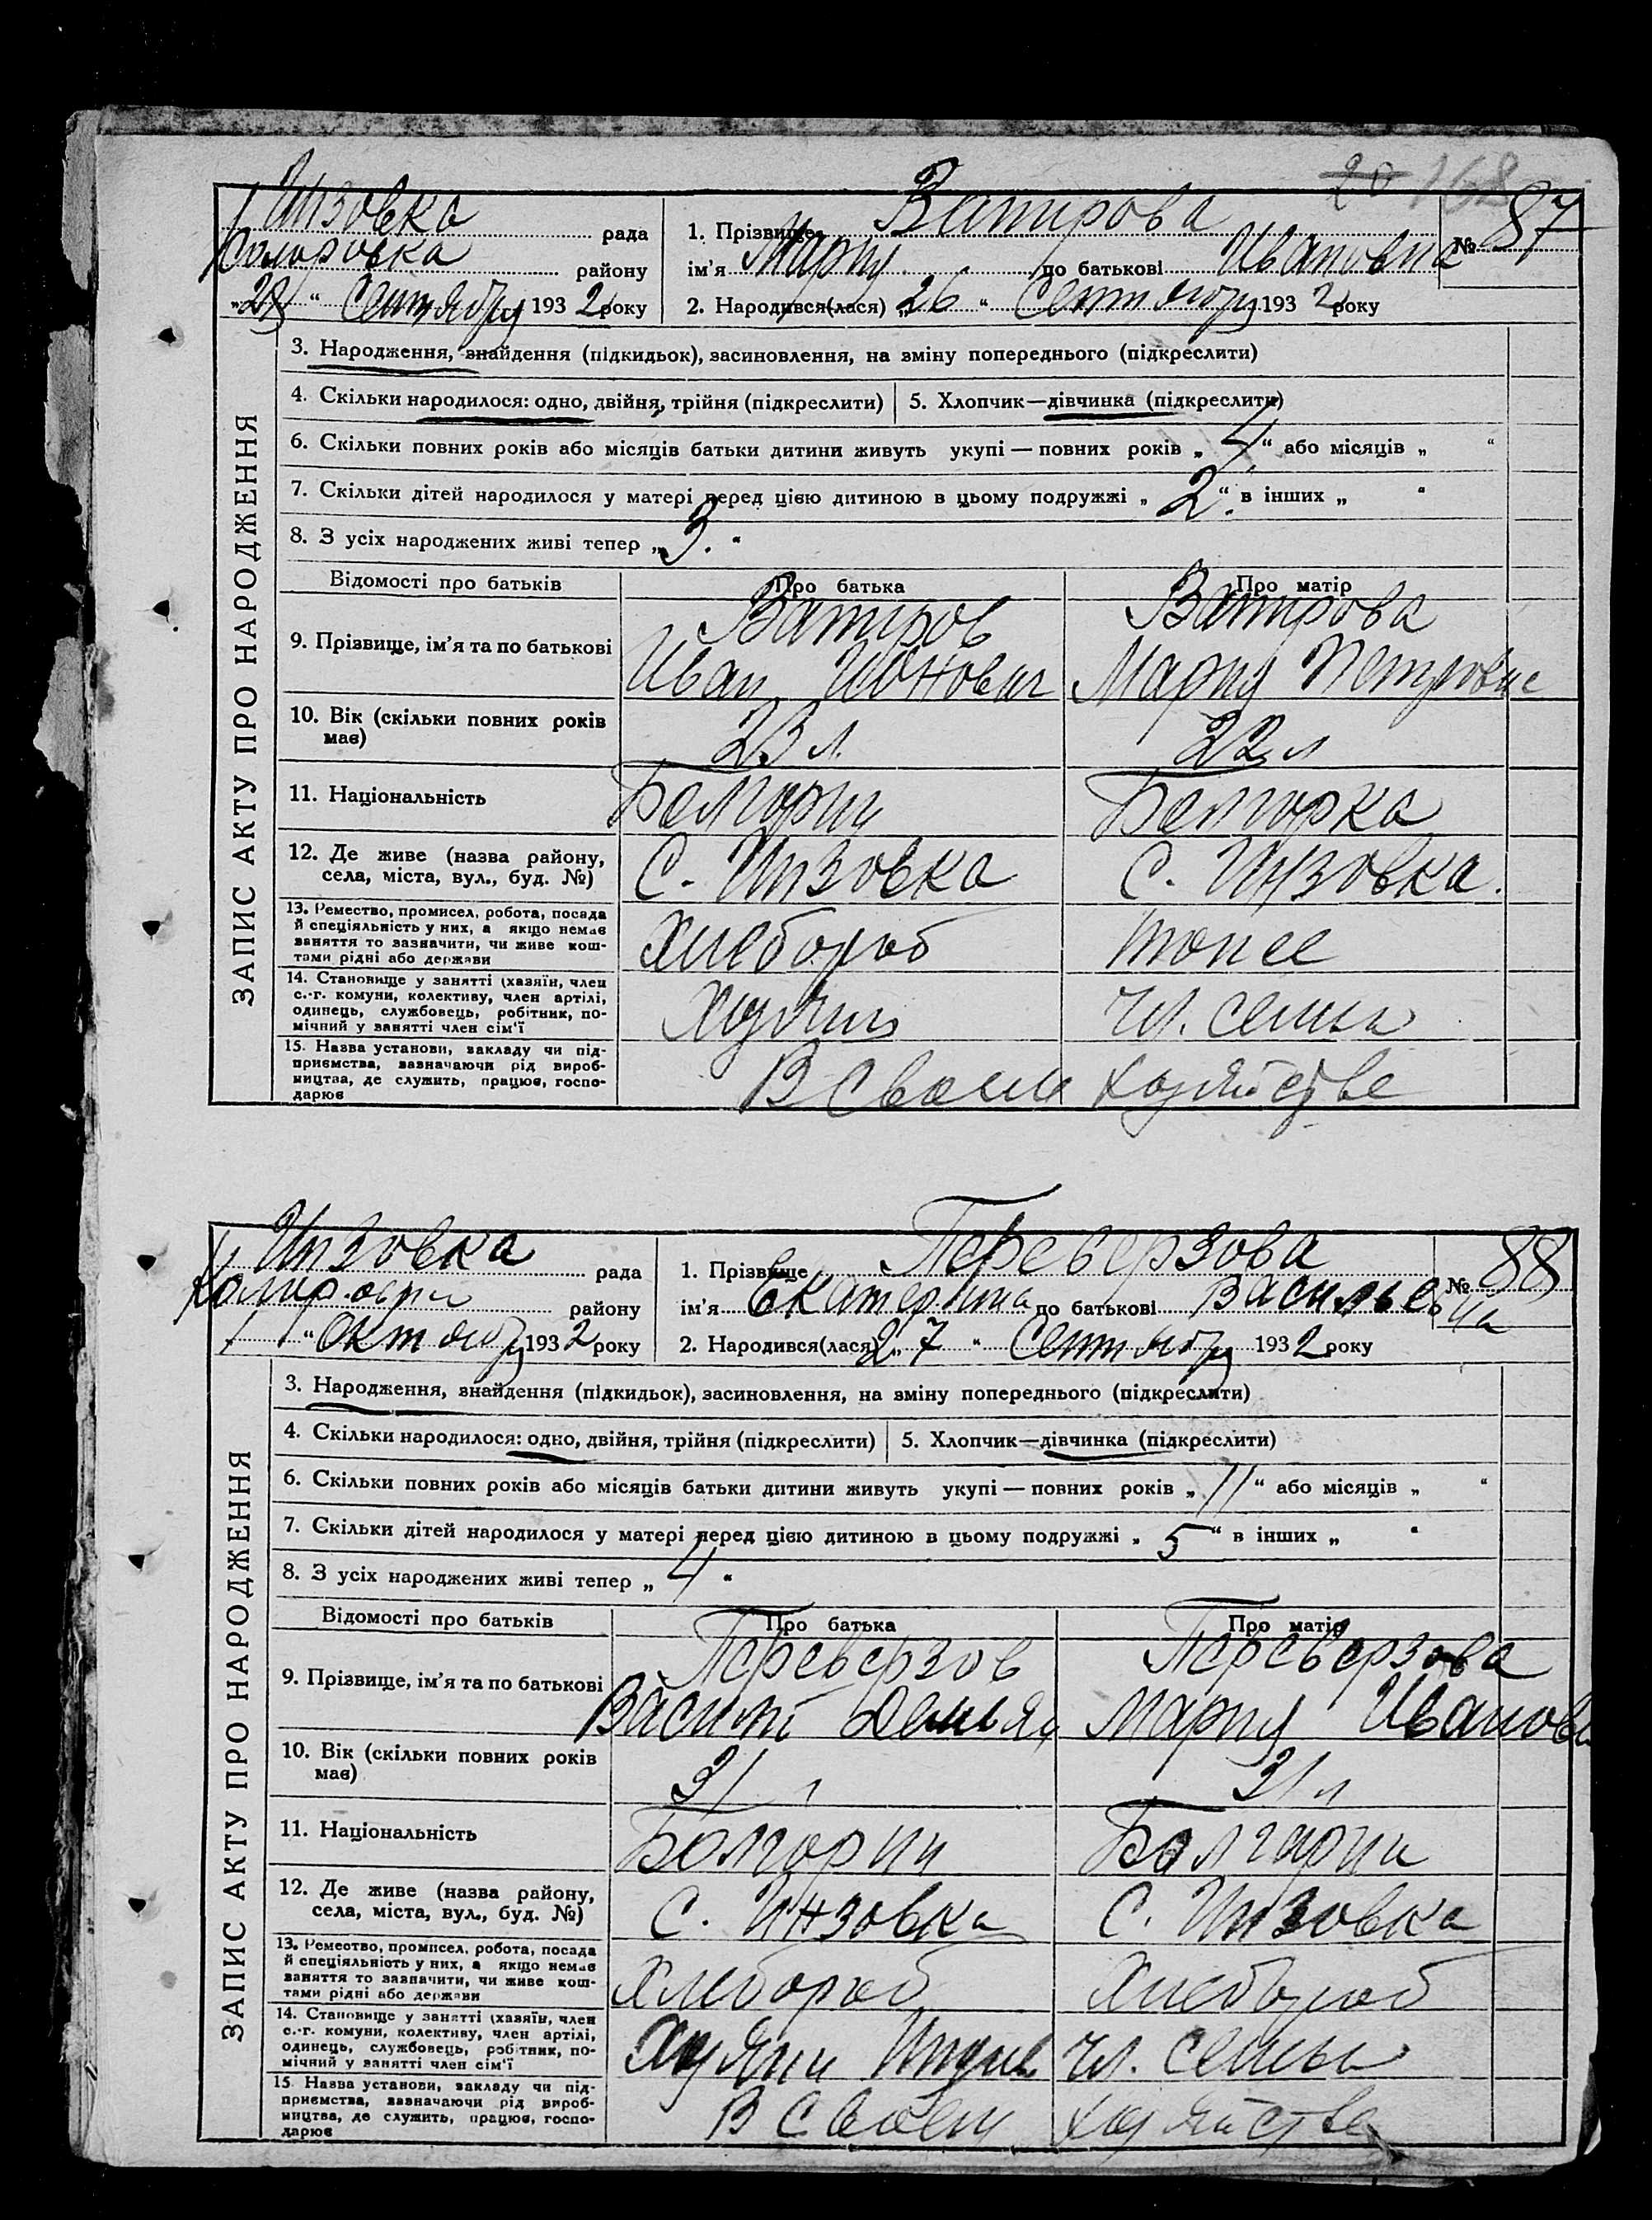 20 168
Инзовка рада
района району
"28" Сентября 1932 року
1. Прізвище Ватрова
№ 87
ім'я Мария по батькові Ивановна
2. Народився(лася) "26" Сентября 1932 року
ЗАПИС АКТУ ПРО НАРОДЖЕННЯ
3. Народження, знайдення (підкидьок), засиновлення, на зміну попереднього (підкреслити)
4. Скільки народилося: одно, двійня, трійня (підкреслити) 5. Хлопчик—дівчинка (підкреслити)
6. Скільки повних років або місяців батьки дитини живуть укупі — повних років „4“ або місяців „ “
7. Скільки дітей народилося у матері перед цією дитиною в цьому подружжі „2“ в інших „ “
8. З усіх народжених живі тепер „3.“
Відомості про батьків Про батька Про матір
9. Прізвище, ім'я та по батькові
Ватров Ватрова
Иван Мария Петровна
10. Вік (скільки повних років має) 23 л. 22 л
11. Національність Болгарин Болгарка
12. Де живе (назва району,
села, міста, вул., буд. №) С. Инзовка С. Инзовка.
13. Ремество, промисел, робота, посада
й спеціяльність у них, а якщо немає
заняття то зазначити, чи живе кош-
тами рідні або держави Хлебороб тоже
14. Становище у занятті (хазяїн, член
с.-г. комуни, колективу, член артілі,
одинець, службовець, робітник, по-
мічний у занятті член сім'ї Хозяин чл. семьи
15. Назва установи, закладу чи під-
приємства, зазначаючи рід вироб-
ництва, де служить, працює, госпо-
дарює В своем хозяйстве
Инзовка рада
району
1 " Октября 1932 року
1. Прізвище Переверзова
№ 88
ім'я Екатерина по батькові Васильевна
2. Народився(лася) „27“ Сентября 1932 року
ЗАПИС АКТУ ПРО НАРОДЖЕННЯ
3. Народження, знайдення (підкидьок), засиновлення, на зміну попереднього (підкреслити)
4. Скільки народилося: одно, двійня, трійня (підкреслити) 5. Хлопчик—дівчинка (підкреслити)
6. Скільки повних років або місяців батьки дитини живуть укупі — повних років „11“ або місяців „ “
7. Скільки дітей народилося у матері перед цією дитиною в цьому подружжі „5“ в інших „ “
8. З усіх народжених живі тепер „4“
Відомості про батьків Про батька Про матір
9. Прізвище, ім'я та по батькові
Переверзов Переверзова
Васили Демья Мария Иванов
10. Вік (скільки повних років має) 31 л 31 л
11. Національність Болгарин Болгарин
12. Де живе (назва району,
села, міста, вул., буд. №) С. Инзовка С. Инзовка
13. Ремество, промисел, робота, посада
й спеціяльність у них, а якщо немає
заняття то зазначити, чи живе кош-
тами рідні або держави Хлебороб Хлебороб
14. Становище у занятті (хазяїн, член
с.-г. комуни, колективу, член артілі,
одинець, службовець, робітник, по-
мічний у занятті член сім'ї Хозяин чл. семьи
15. Назва установи, закладу чи під-
приємства, зазначаючи рід вироб-
ництва, де служить, працює, госпо-
дарює В своем хозяйстве